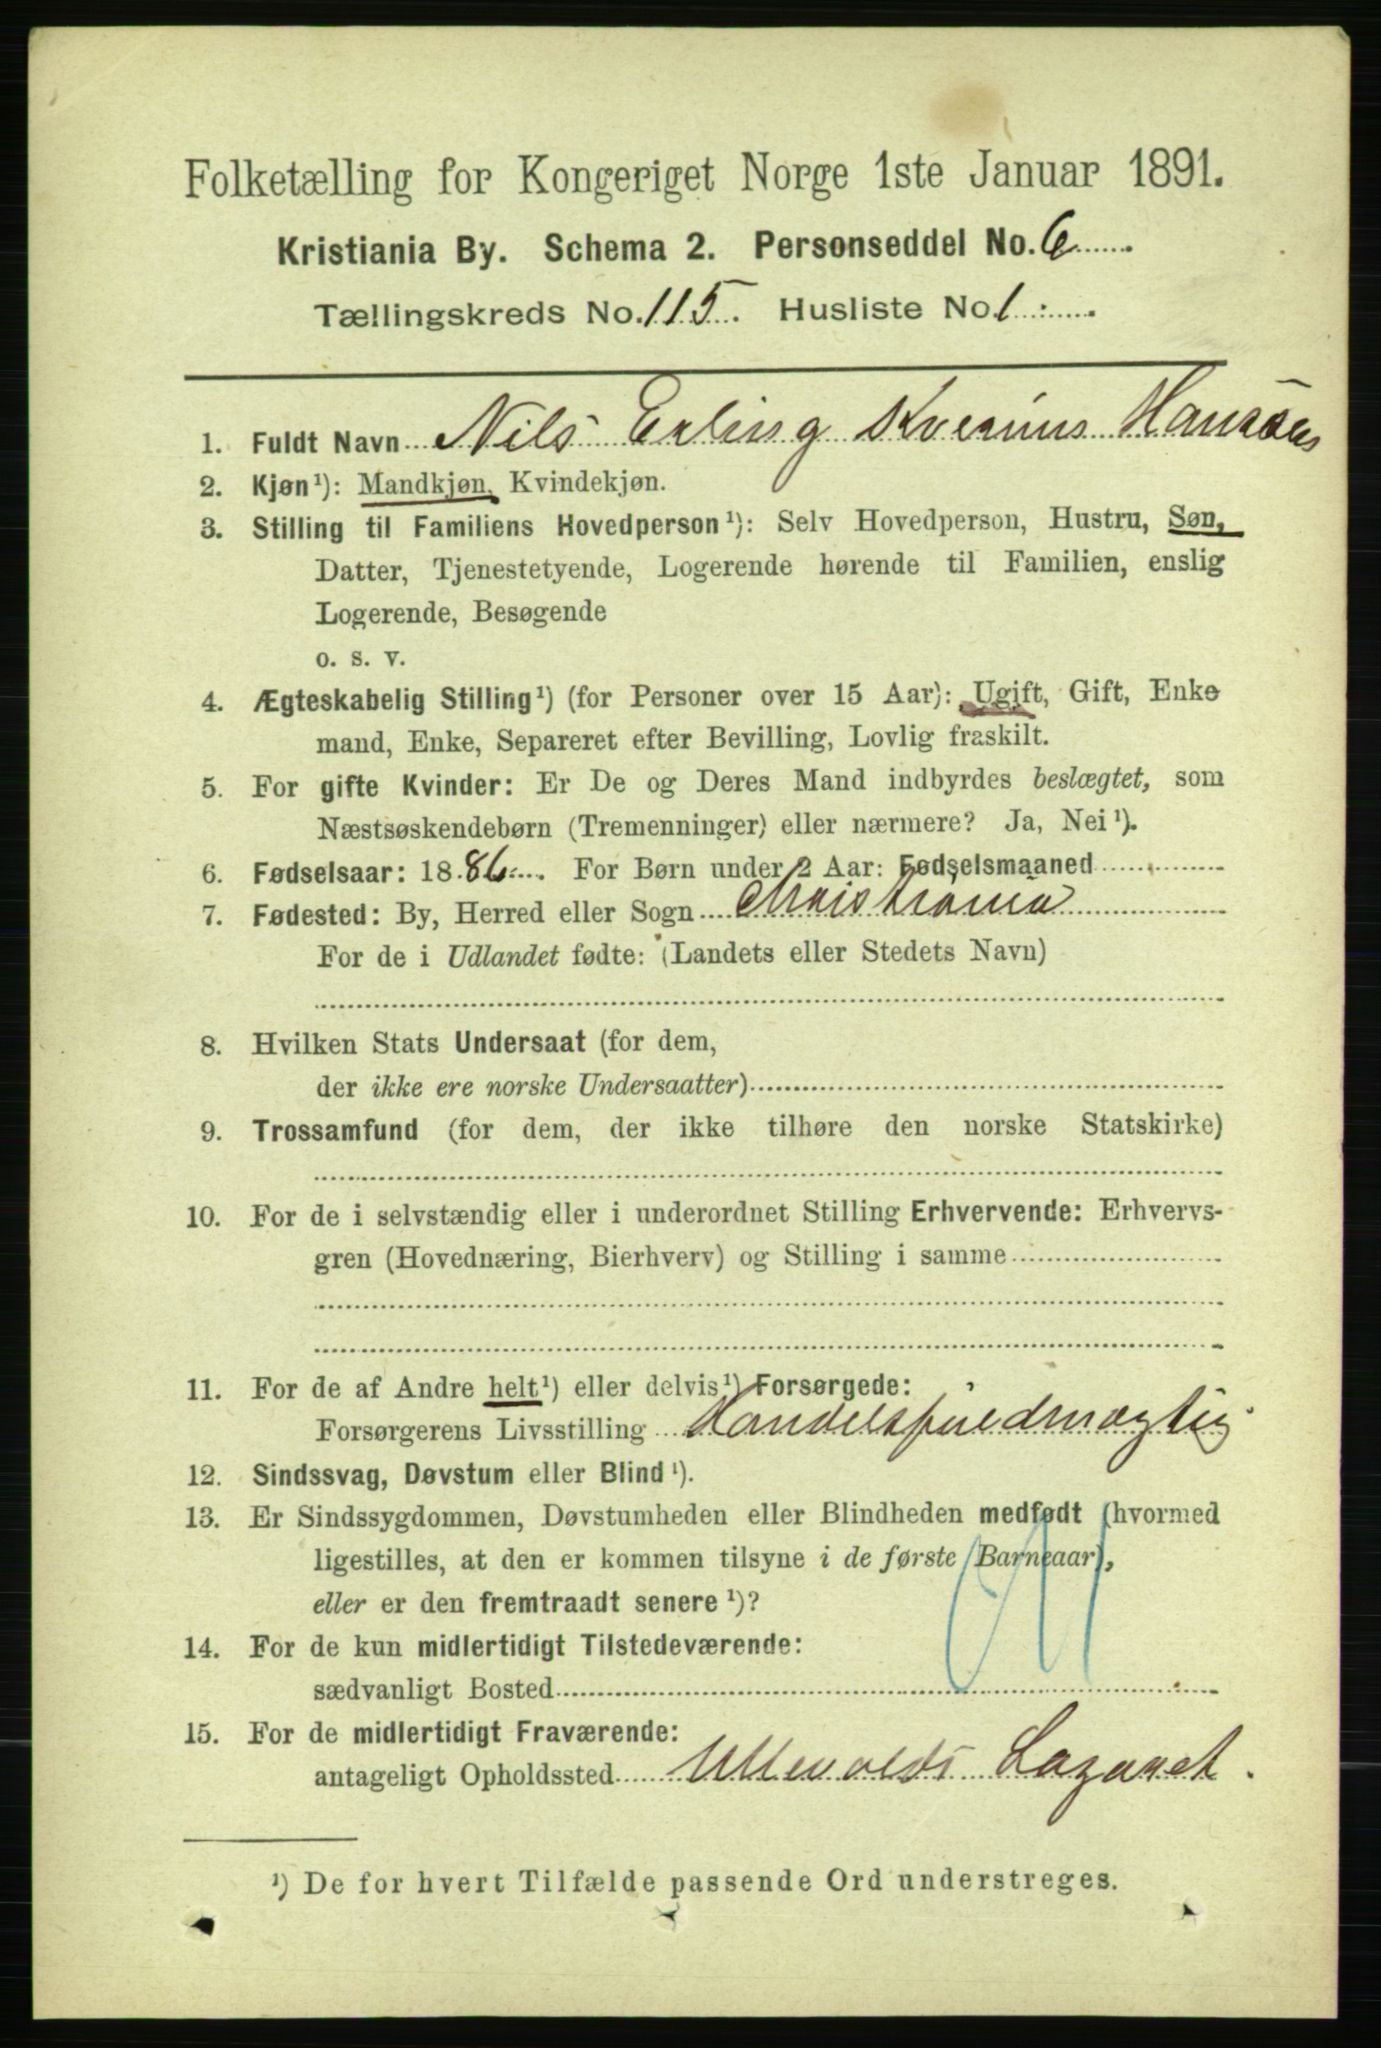 Folketælling for Kongeriget Norge 1ste Januar 1891.
Kristiania By. Schema 2. Personseddel No. 6
Tællingskreds No. 115. Husliste No. 1
1. Fuldt Navn Nils Erling Kverinus Hansen
2. Kjøn¹): Mandkjøn, Kvindekjøn.
3. Stilling til Familiens Hovedperson¹): Selv Hovedperson, Hustru, Søn,
Datter, Tjenestetyende, Logerende hørende til Familien, enslig
Logerende, Besøgende
o. s. v.
4. Ægteskabelig Stilling¹) (for Personer over 15 Aar): Ugift, Gift, Enke
mand, Enke, Separeret efter Bevilling, Lovlig fraskilt.
5. For gifte Kvinder: Er De og Deres Mand indbyrdes beslægtet, som
Næstsøskendebørn (Tremenninger) eller nærmere? Ja, Nei¹).
6. Fødselsaar: 1886. For Børn under 2 Aar: Fødselsmaaned
7. Fødested: By, Herred eller Sogn Christiania
For de i Udlandet fødte: (Landets eller Stedets Navn)
8. Hvilken Stats Undersaat (for dem,
der ikke ere norske Undersaatter)
9. Trossamfund (for dem, der ikke tilhøre den norske Statskirke)
10. For de i selvstændig eller i underordnet Stilling Erhvervende: Erhvervs-
gren (Hovednæring, Bierhverv) og Stilling i samme
11. For de af Andre helt¹) eller delvis¹) Forsørgede:
Forsørgerens Livsstilling Handelsfuldmægtig
12. Sindssvag, Døvstum eller Blind¹).
13. Er Sindssygdommen, Døvstumheden eller Blindheden medfødt (hvormed
ligestilles, at den er kommen tilsyne i de første Barneaar),
eller er den fremtraadt senere¹)?
14. For de kun midlertidigt Tilstedeværende:
sædvanligt Bosted
15. For de midlertidigt Fraværende:
antageligt Opholdssted Ullevolds Lazaret.
¹) De for hvert Tilfælde passende Ord understreges.